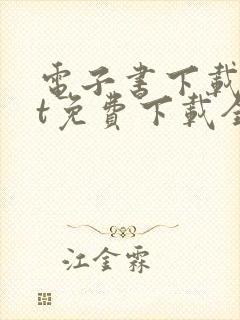 電子書下載
t免費下載全
江金霖